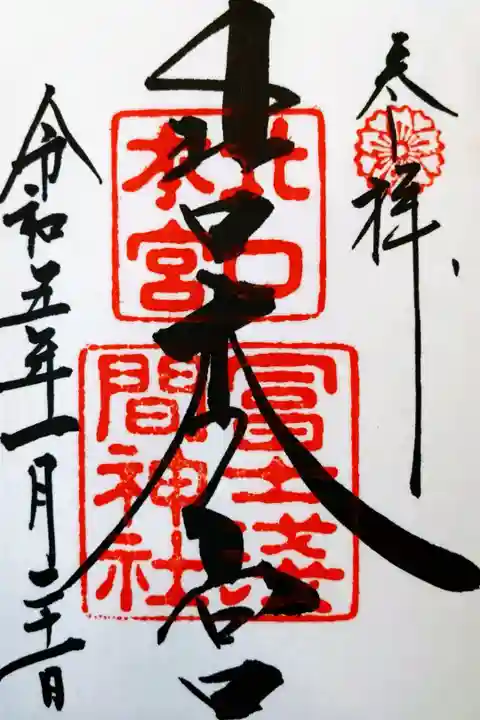 奉拝
北口本宮
北口
本宮
冨士浅
間神社
令和五年一月二十一日